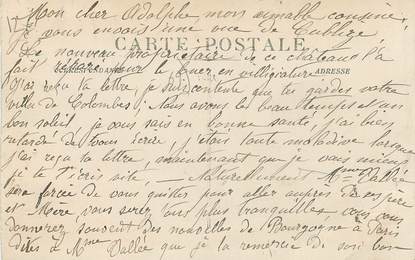 Mon cher Adolphe mon aimable cousine,
je vous envois une vue de Cublize
CARTE POSTALE
Le nouveau propriétaire de ce château l'a
fait réparer pour le louer en villégiature
CORRESPONDANCE
ADRESSE
J'ai reçu ta lettre, je suis contente que tu gardes votre
villa de Colombes. Nous avons le beau temps et un
bon soleil, je vous sais en bonne santé, j'ai bien
retardé de vous écrire, j'étais toute maladive lorsque
j'ai reçu ta lettre, maintenant que je vais mieux
je t'écris vite. Naturellement Mme Vallée
sera forcée de vous quitter pour aller auprès de ses père
et Mère, vous serez plus tranquilles, vous vous
donnerez souvent des nouvelles de Bourgogne à Paris
dites à Mme Vallée que je la remercie de son bon